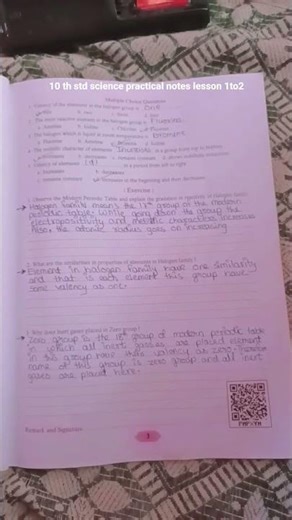 10 th std science practical notes lesson 1to2
Multiple Choice Questions
1. Valency of the elements in the halogen group is One
2. The most reactive element in the halogen group is Fluorine
Fluorine
a. Astatine b. Iodine c. Chlorine d. Fluorine
3. The halogen which is liquid at room temperature is Bromine
a. Fluorine b. Astatine c. Bromine d. Iodine
4. The metallic character of elements Increases in a group from top to bottom
a. increases b. decreases c. remains constant
5. Valency of elements in a period from left to right
a. increases b. decreases
c. remains constant d. increases in the beginning and then decreases
: Exercise :
1. Observe the Modern Periodic Table and explain the gradation in reactivity in Halogen family.
→ Halogen family means the 17th group of the modern
periodic table. While going down the group the
electropositivity and metallic character increases
Also, the atomic radius goes on increasing
2. What are the similarities in properties of elements in Halogen family ?
→ Element in halogen family have one similarity
and that is each element this group have
same valency as one.
3. Why were inert gases placed in Zero group ?
→ Zero group is the 18th group of modern periodic table
in which all inert gasses are placed element
in this group have their valency as zero. Therefore
name of this group is zero group and all inert
gases are placed here.
Remark and Signature
1